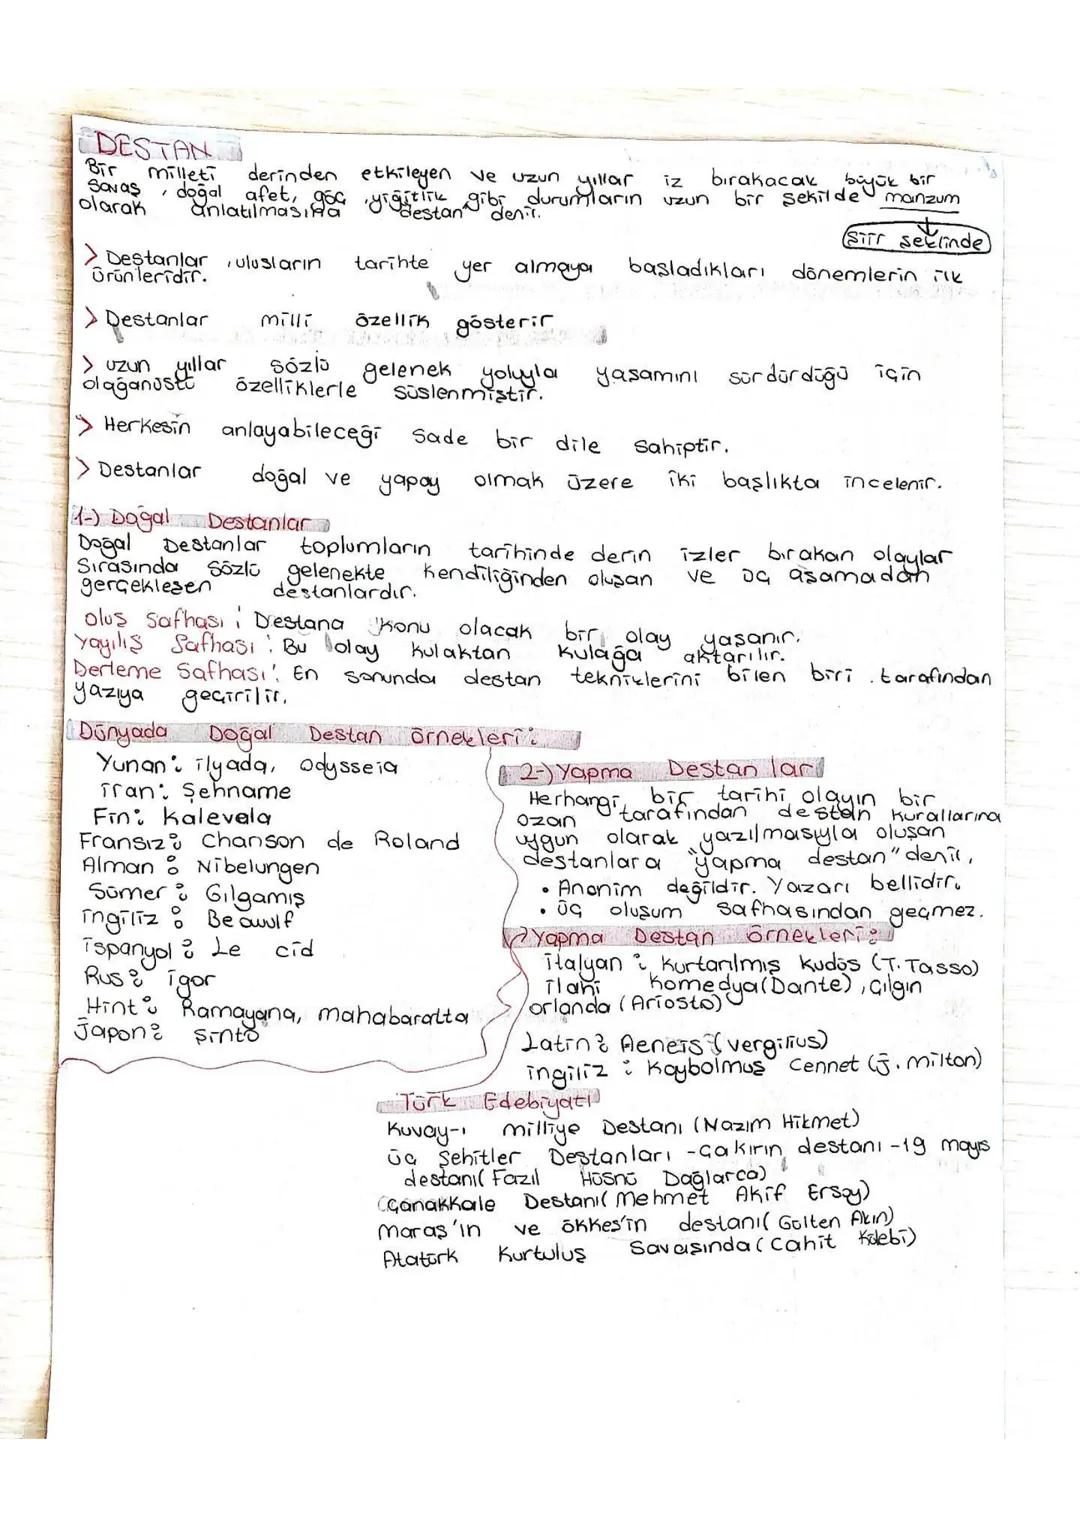 DESTAN
Bir milleti derinden etkileyen ve uzun yıllar iz bırakacak büyük bir
savaş, doğal afet, göç, yiğitlik gibi durumların uzun bir şekilde manzum
olarak anlatılmasına destan denir.
şiir şeklinde
> Destanlar, ulusların tarihte yer almaya başladıkları dönemlerin ilk
ürünleridir.
> Destanlar milli özellik gösterir
> uzun yıllar sözlü gelenek yoluyla yaşamını sürdürdüğü için
olağanüstü özelliklerle süslenmiştir.
> Herkesin anlayabileceği sade bir dile sahiptir.
> Destanlar doğal ve yapay olmak üzere iki başlıkta incelenir.
1-) Doğal Destanlar
Doğal Destanlar toplumların tarihinde derin izler bırakan olaylar
sırasında sözlü gelenekte kendiliğinden oluşan ve üç aşamadan
gerçekleşen destanlardır.
oluş Safhası: Destana konu olacak bir olay yaşanır.
Yayılış Safhası: Bu olay kulaktan kulağa aktarılır.
Derleme Safhası: En sonunda destan tekniklerini bilen biri tarafından
yazıya geçirilir.
Dünyada Doğal Destan örnekleri:
Yunan: ilyada, odysseia
iran: Şehname
Fin: Kalevela
Fransız: Chanson de Roland
Alman: Nibelungen
Sümer: Gılgamış
ingiliz: Beawulf
ispanyol: Le cid
Rus: igor
Hint: Ramayana, mahabaratta
Japon: şinto
2-) Yapma Destanlar
Herhangi bir tarihi olayın bir
ozan tarafından destan kurallarına
uygun olarak yazılmasıyla oluşan
destanlara "yapma destan" denir.
• Anonim değildir. Yazarı bellidir.
• üç oluşum safhasından geçmez.
Yapma Destan örnekleri:
italyan: Kurtarılmış kudüs (T. Tasso)
ilahi komedya (Dante), Çılgın
orlando (Ariosto)
Latin: Aeneis (vergilius)
ingiliz: Kaybolmuş Cennet (j. milton)
Türk Edebiyatı
Kuvay-ı milliye Destanı (Nazım Hikmet)
üç Şehitler Destanları - Çakırın destanı - 19 mayıs
destanı (Fazıl Hüsnü Dağlarca)
Çanakkale Destanı (Mehmet Akif Ersoy)
maraş'ın ve ökkeş'in destanı (Gülten Akın)
Atatürk Kurtuluş Savaşında (Cahit Külebi)